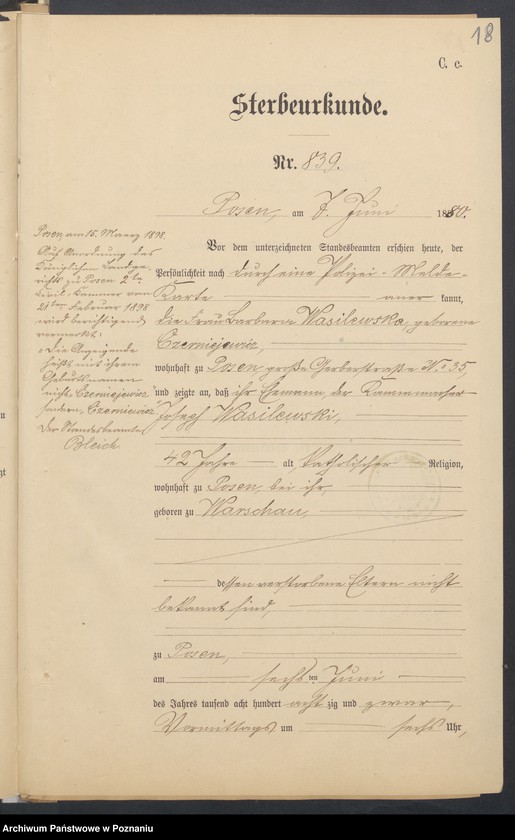 18
C. c.
Sterbeurkunde.
Nr. 839.
Posen, am 7. Juni 1880.
Vor dem unterzeichneten Standesbeamten erschien heute, der
Persönlichkeit nach durch eine Polizei-Melde-
Karte anerkannt,
die Frau Barbara Wasilewska, geborene
Czerniejewicz,
wohnhaft zu Posen, große Gerberstraße No. 35
und zeigte an, daß ihr Ehemann, der Kammmacher
Joseph Wasilewski,
42 Jahre alt, katholischer Religion,
wohnhaft zu Posen, bei ihr,
geboren zu Warschau,
dessen verstorbene Eltern nicht
bekannt sind,
zu Posen,
am sechs ten Juni
des Jahres tausend acht hundert acht zig und zwar,
Vormittags um sechs Uhr,
Posen am 15. Maerz 1898.
Auf Anordnung des
Königlichen Landge-
richts zu Posen 2te
Civil-Kammer vom
21ten Februar 1898
wird berichtigend
vermerkt:
Die Anzeigende
heißt mit ihrem
Geburtsnamen
nicht Czerniejewicz
sondern Czerniewicz
Der Standesbeamte
Bleich
Archiwum Państwowe w Poznaniu